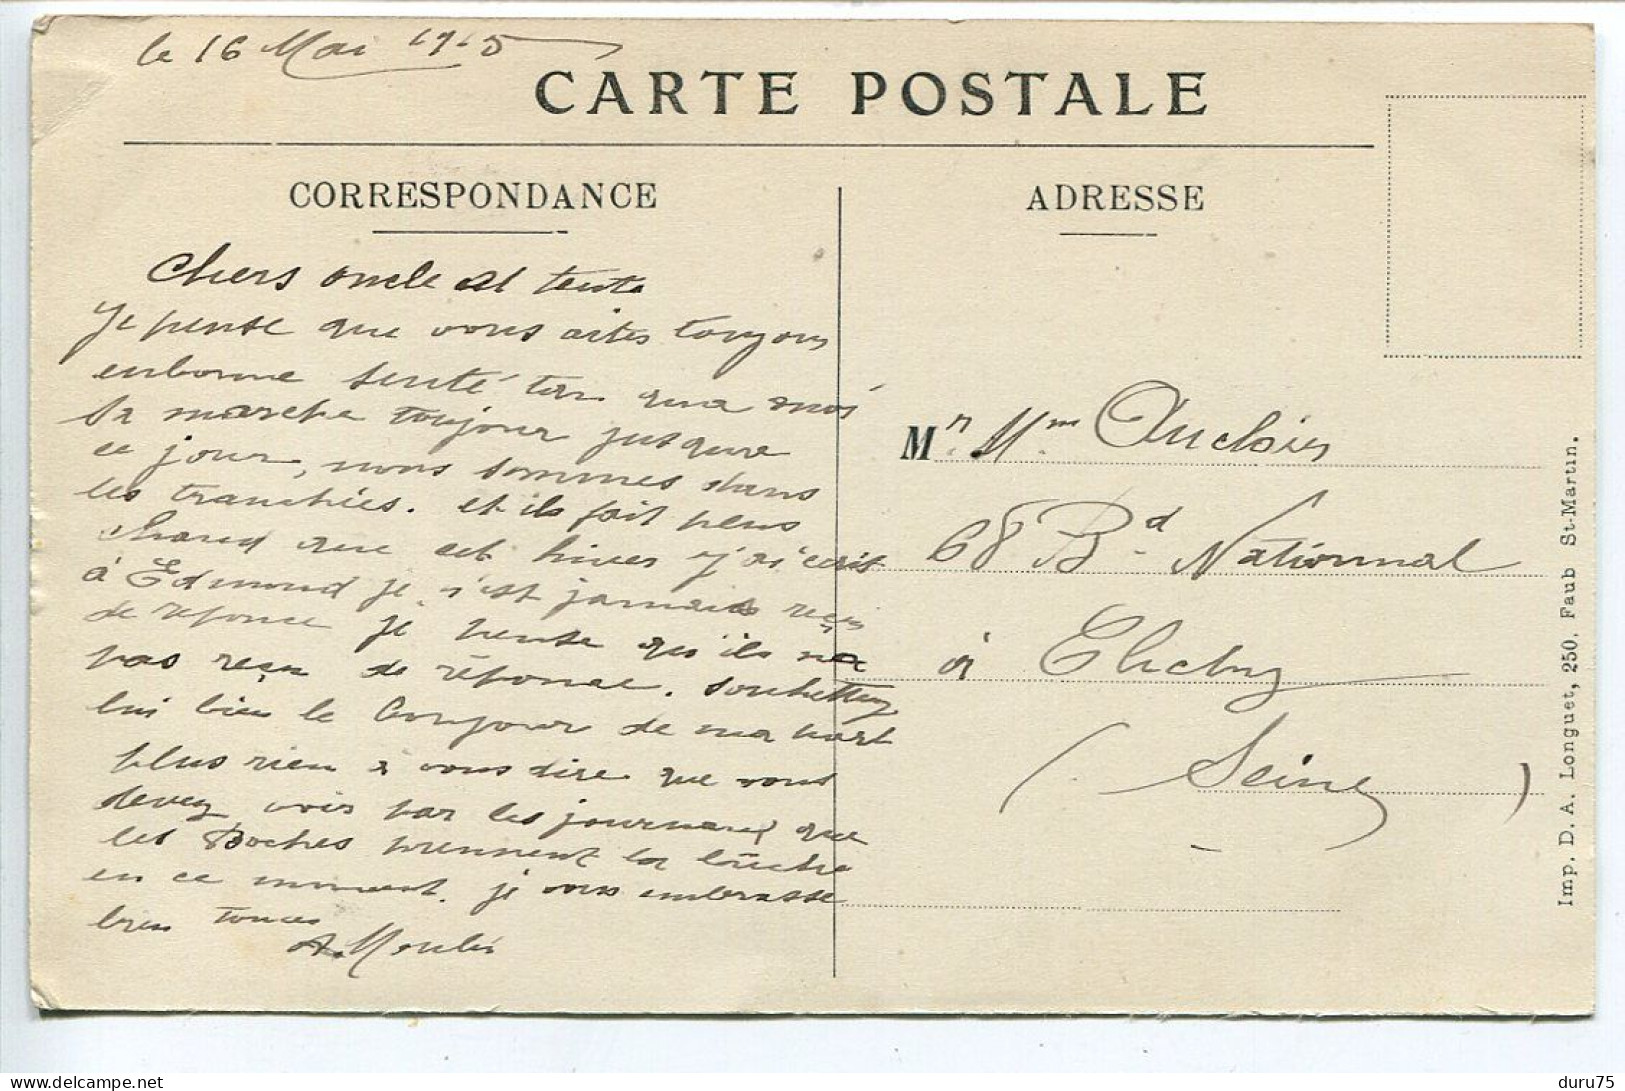 le 16 Mai 1915
CARTE POSTALE
CORRESPONDANCE
Chers oncle et tente
Je pense que vous aites toujours
enbonne senté tan qua moi
sa marche toujour jusquea
ce jour, nous sommes dans
les tranchées. et ils fait plus
chaud que cet hiver j'ai ecrit
à Edmond je n'est jamais reçus
de reponce je pense qu'ils na
pas reçu de réponce. souhettez
lui bien le bonjour de ma part
plus rien a vous dire que vous
devez voir par les journaux que
les Boches prennent la
en ce moment. je vous embrasse
bien tous
A. Moulin
ADRESSE
Mr. Mme Auclair
68 Bd National
à Clichy
(Seine)
Imp. D. A. Longuet, 250, Faub St-Martin.
delcampe.net
duru75